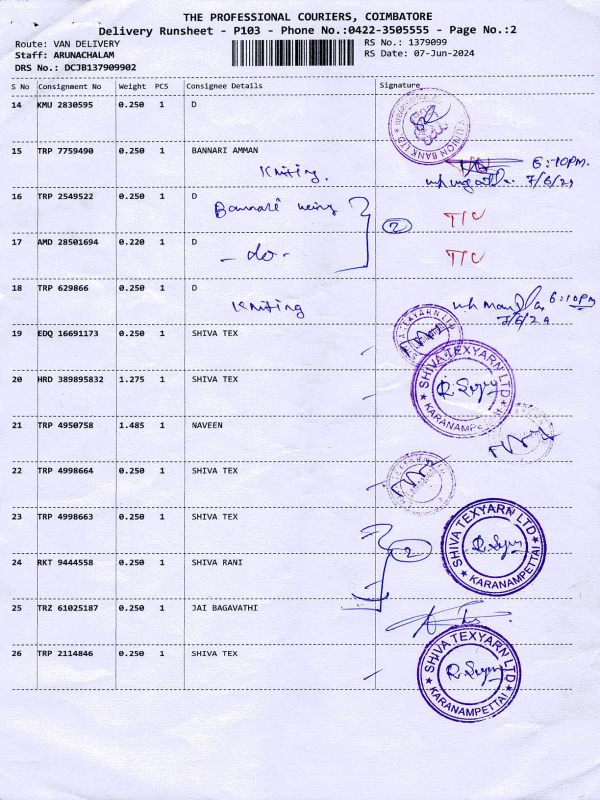 THE PROFESSIONAL COURIERS, COIMBATORE
Delivery Runsheet - P103 - Phone No.:0422-3505555 - Page No.:2
Route: VAN DELIVERY RS No.: 1379099
Staff: ARUNACHALAM RS Date: 07-Jun-2024
DRS No.: DCJB137909902
S No Consignment No Weight PCS Consignee Details Signature
14 KMU 2830595 0.250 1 D
UNION BANK LTD
15 TRP 7759490 0.250 1 BANNARI AMMAN
Kniting. 6:10PM.
7/6/24
16 TRP 2549522 0.250 1 D
Bannari 2 T/C
17 AMD 28501694 0.220 1 D
- do - T/C
18 TRP 629866 0.250 1 D
Kniting 6:10PM
7/6/24
19 EDQ 16691173 0.250 1 SHIVA TEX
20 HRD 389895832 1.275 1 SHIVA TEX
SHIVA TEXYARN LTD
KARANAMPETTAI
21 TRP 4950758 1.485 1 NAVEEN
22 TRP 4998664 0.250 1 SHIVA TEX
23 TRP 4998663 0.250 1 SHIVA TEX
2
SHIVA TEXYARN LTD
KARANAMPETTAI
24 RKT 9444558 0.250 1 SHIVA RANI
25 TRZ 61025187 0.250 1 JAI BAGAVATHI
26 TRP 2114846 0.250 1 SHIVA TEX
SHIVA TEXYARN LTD
KARANAMPETTAI